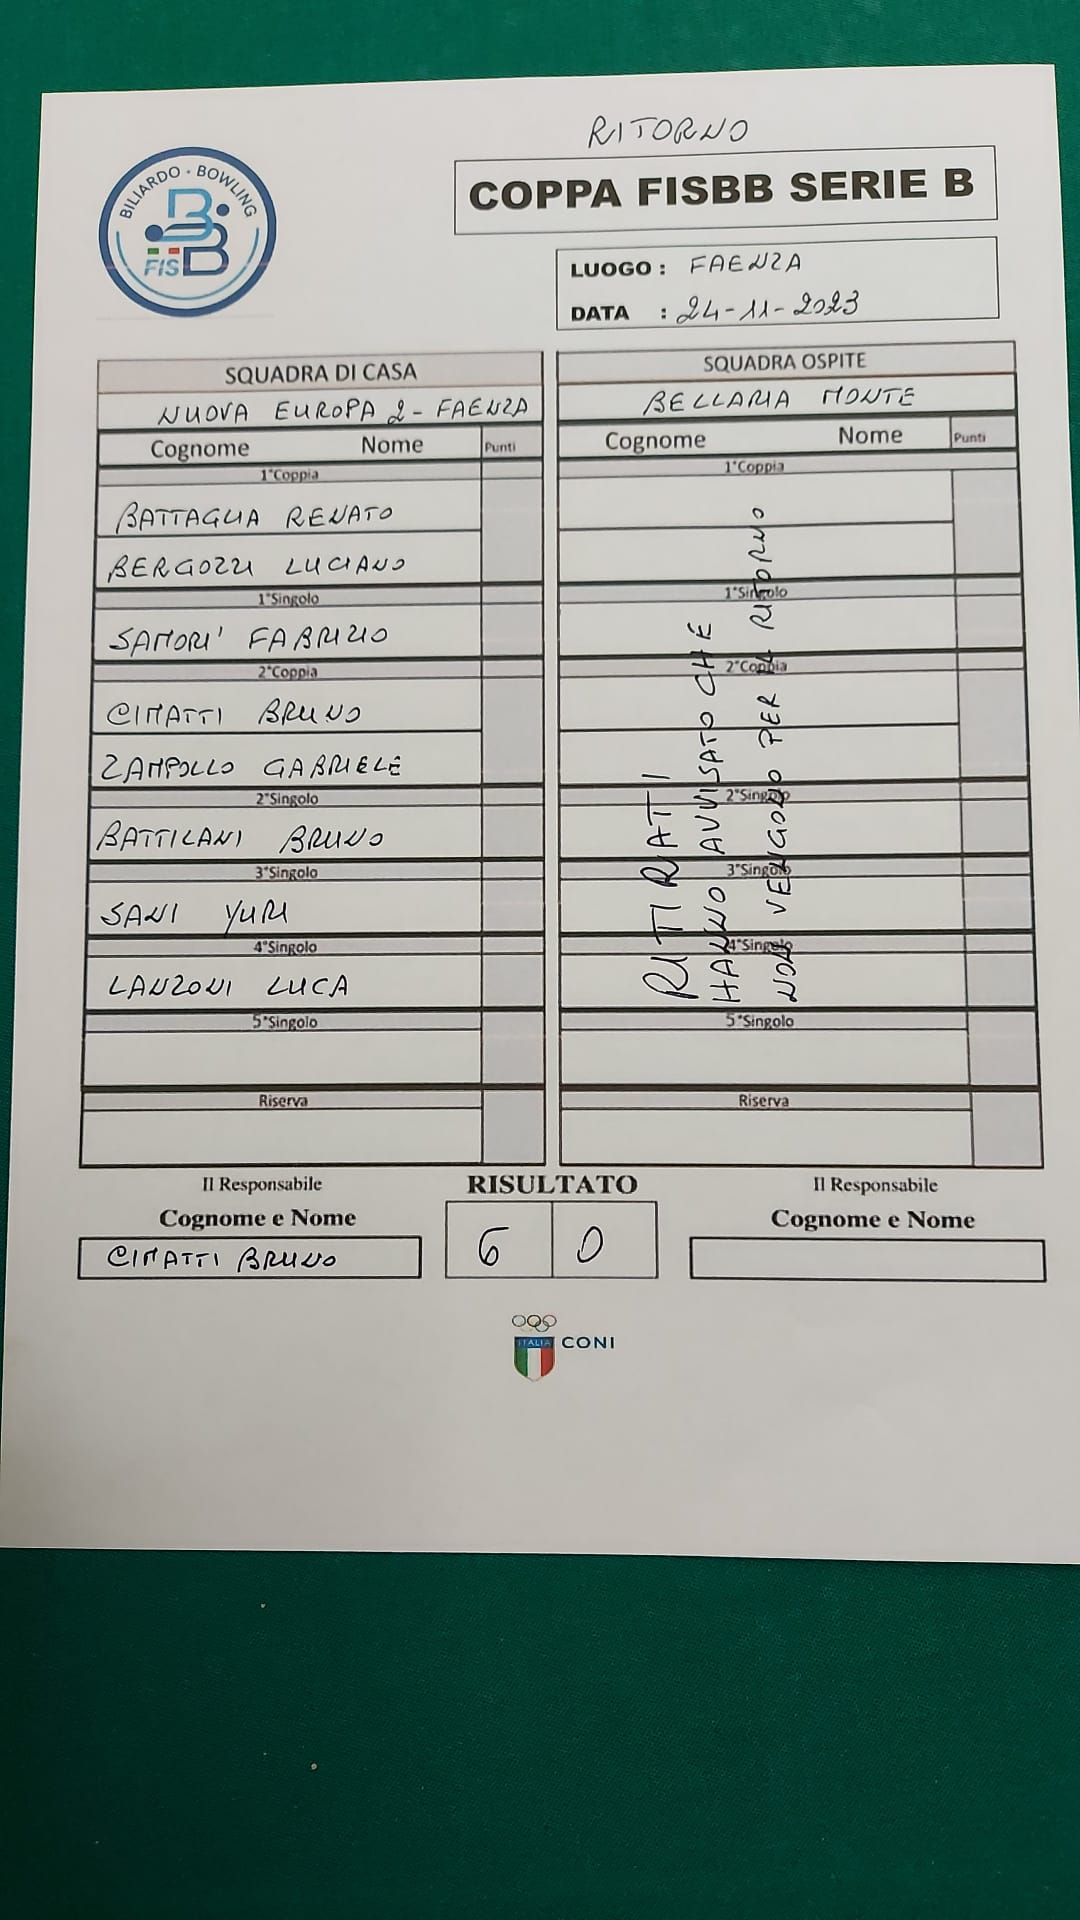 RITORNO
BILIARDO · BOWLING
FISBB
COPPA FISBB SERIE B
LUOGO : FAENZA
DATA : 24-11-2023
SQUADRA DI CASA
NUOVA EUROPA 2 - FAENZA
Cognome Nome Punti
1°Coppia
BATTAGLIA RENATO
BERGOZZI LUCIANO
1°Singolo
SAMORI' FABRIZIO
2°Coppia
CIMATTI BRUNO
ZAMPOLLO GABRIELE
2°Singolo
BATTILANI BRUNO
3°Singolo
SANI YURI
4°Singolo
LANZONI LUCA
5°Singolo
Riserva
SQUADRA OSPITE
BELLARIA MONTE
Cognome Nome Punti
1°Coppia
1°Singolo
2°Coppia
2°Singolo
3°Singolo
4°Singolo
5°Singolo
Riserva
RITIRATI
HANNO AVVISATO CHÉ
NON VENGONO PER IL RITORNO
Il Responsabile
Cognome e Nome
CIMATTI BRUNO
RISULTATO
6 0
Il Responsabile
Cognome e Nome
ITALIA
CONI